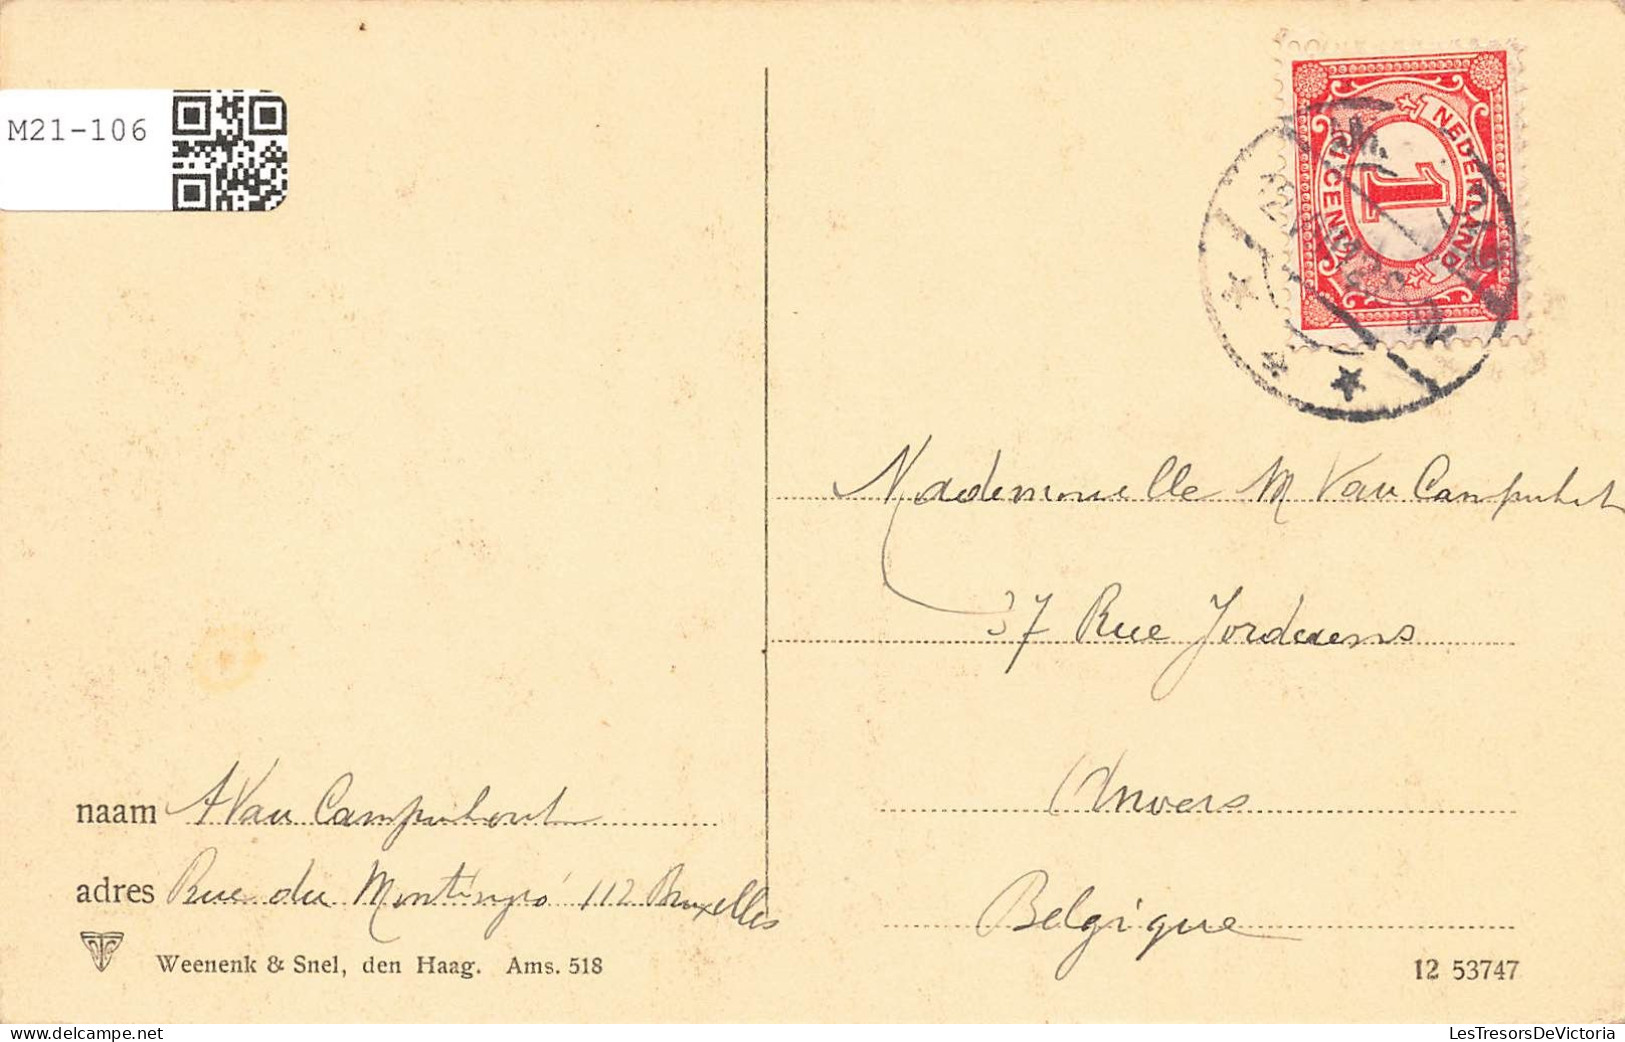 M21-106
NEDERLAND
1 CENT
1
Mademoiselle M Van Campenhout
37 Rue Jordaens
Anvers
Belgique
naam A Van Campenhout
adres Rue du 112 Bruxelles
Weenenk & Snel, den Haag. Ams. 518
12 53747
LesTresorsDeVictoria